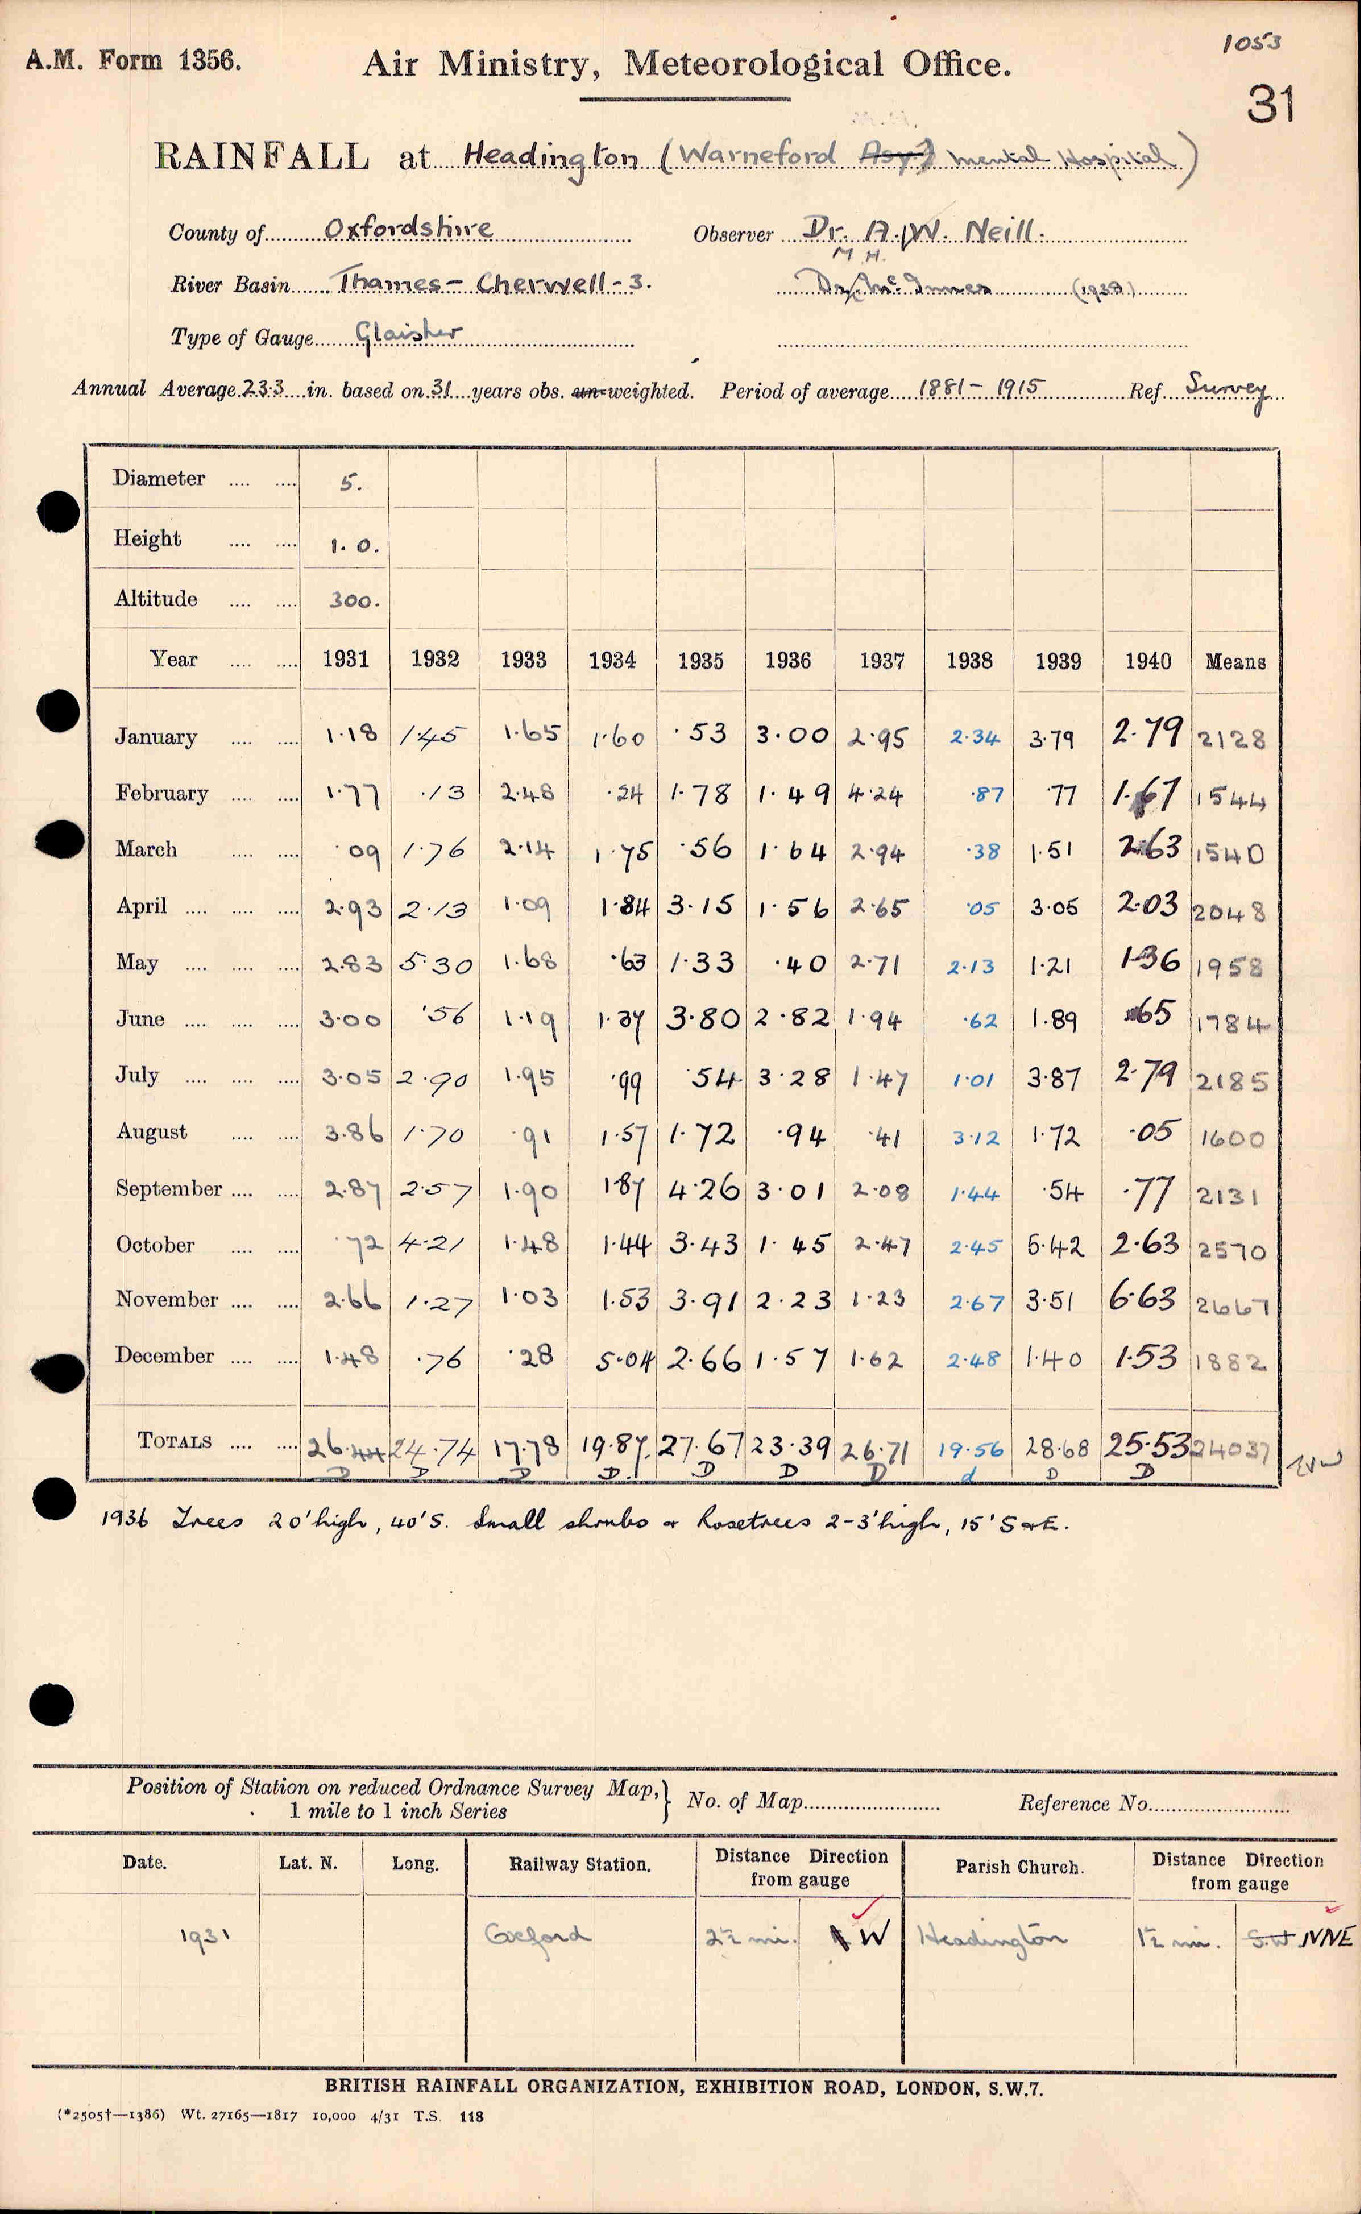 1053
A.M. Form 1356. Air Ministry, Meteorological Office.
31
RAINFALL at Headington (Warneford Asy? Mental Hospital)
County of Oxfordshire Observer Dr. A. W. Neill.
M. H.
River Basin Thames - Cherwell - 3. Dr. McInnes (1938)
Type of Gauge Glaisher
Annual Average 23.3 in. based on 31 years obs. un-weighted. Period of average 1881 - 1915 Ref. Survey
Diameter .... .... 5.
Height .... .... 1.0.
Altitude .... .... 300.
Year .... .... 1931 1932 1933 1934 1935 1936 1937 1938 1939 1940 Means
January .... .... 1.18 1.45 1.65 1.60 .53 3.00 2.95 2.34 3.79 2.79 2128
February .... .... 1.77 .13 2.48 .24 1.78 1.49 4.24 .87 .77 1.67 1544
March .... .... .09 1.76 2.14 1.75 .56 1.64 2.94 .38 1.51 2.63 1540
April .... .... .... 2.93 2.13 1.09 1.84 3.15 1.56 2.65 .05 3.05 2.03 2048
May .... .... .... 2.83 5.30 1.68 .63 1.33 .40 2.71 2.13 1.21 1.36 1958
June .... .... .... 3.00 .56 1.19 1.37 3.80 2.82 1.94 .62 1.89 .65 1784
July .... .... .... 3.05 2.90 1.95 .99 .54 3.28 1.47 1.01 3.87 2.79 2185
August .... .... 3.86 1.70 .91 1.57 1.72 .94 .41 3.12 1.72 .05 1600
September .... .... 2.87 2.57 1.90 1.87 4.26 3.01 2.08 1.44 .54 .77 2131
October .... .... .72 4.21 1.48 1.44 3.43 1.45 2.47 2.45 5.42 2.63 2570
November .... .... 2.66 1.27 1.03 1.53 3.91 2.23 1.23 2.67 3.51 6.63 2667
December .... .... 1.48 .76 .28 5.04 2.66 1.57 1.62 2.48 1.40 1.53 1882
TOTALS .... .... 26.44 24.74 17.78 19.87 27.67 23.39 26.71 19.56 28.68 25.53 24037
D D D D D D D d D D
1936 Trees 20' high, 40' S. Small shrubs & Rosetrees 2-3' high, 15' S & E.
Position of Station on reduced Ordnance Survey Map,} No. of Map Reference No.
1 mile to 1 inch Series
Date. Lat. N. Long. Railway Station. Distance Direction from gauge Parish Church. Distance Direction from gauge
1931 Oxford 2½ mi. W Headington 1½ mi. S.W NNE
BRITISH RAINFALL ORGANIZATION, EXHIBITION ROAD, LONDON, S.W.7.
(*2505†—1386) Wt. 27165—1817 10,000 4/31 T.S. 118